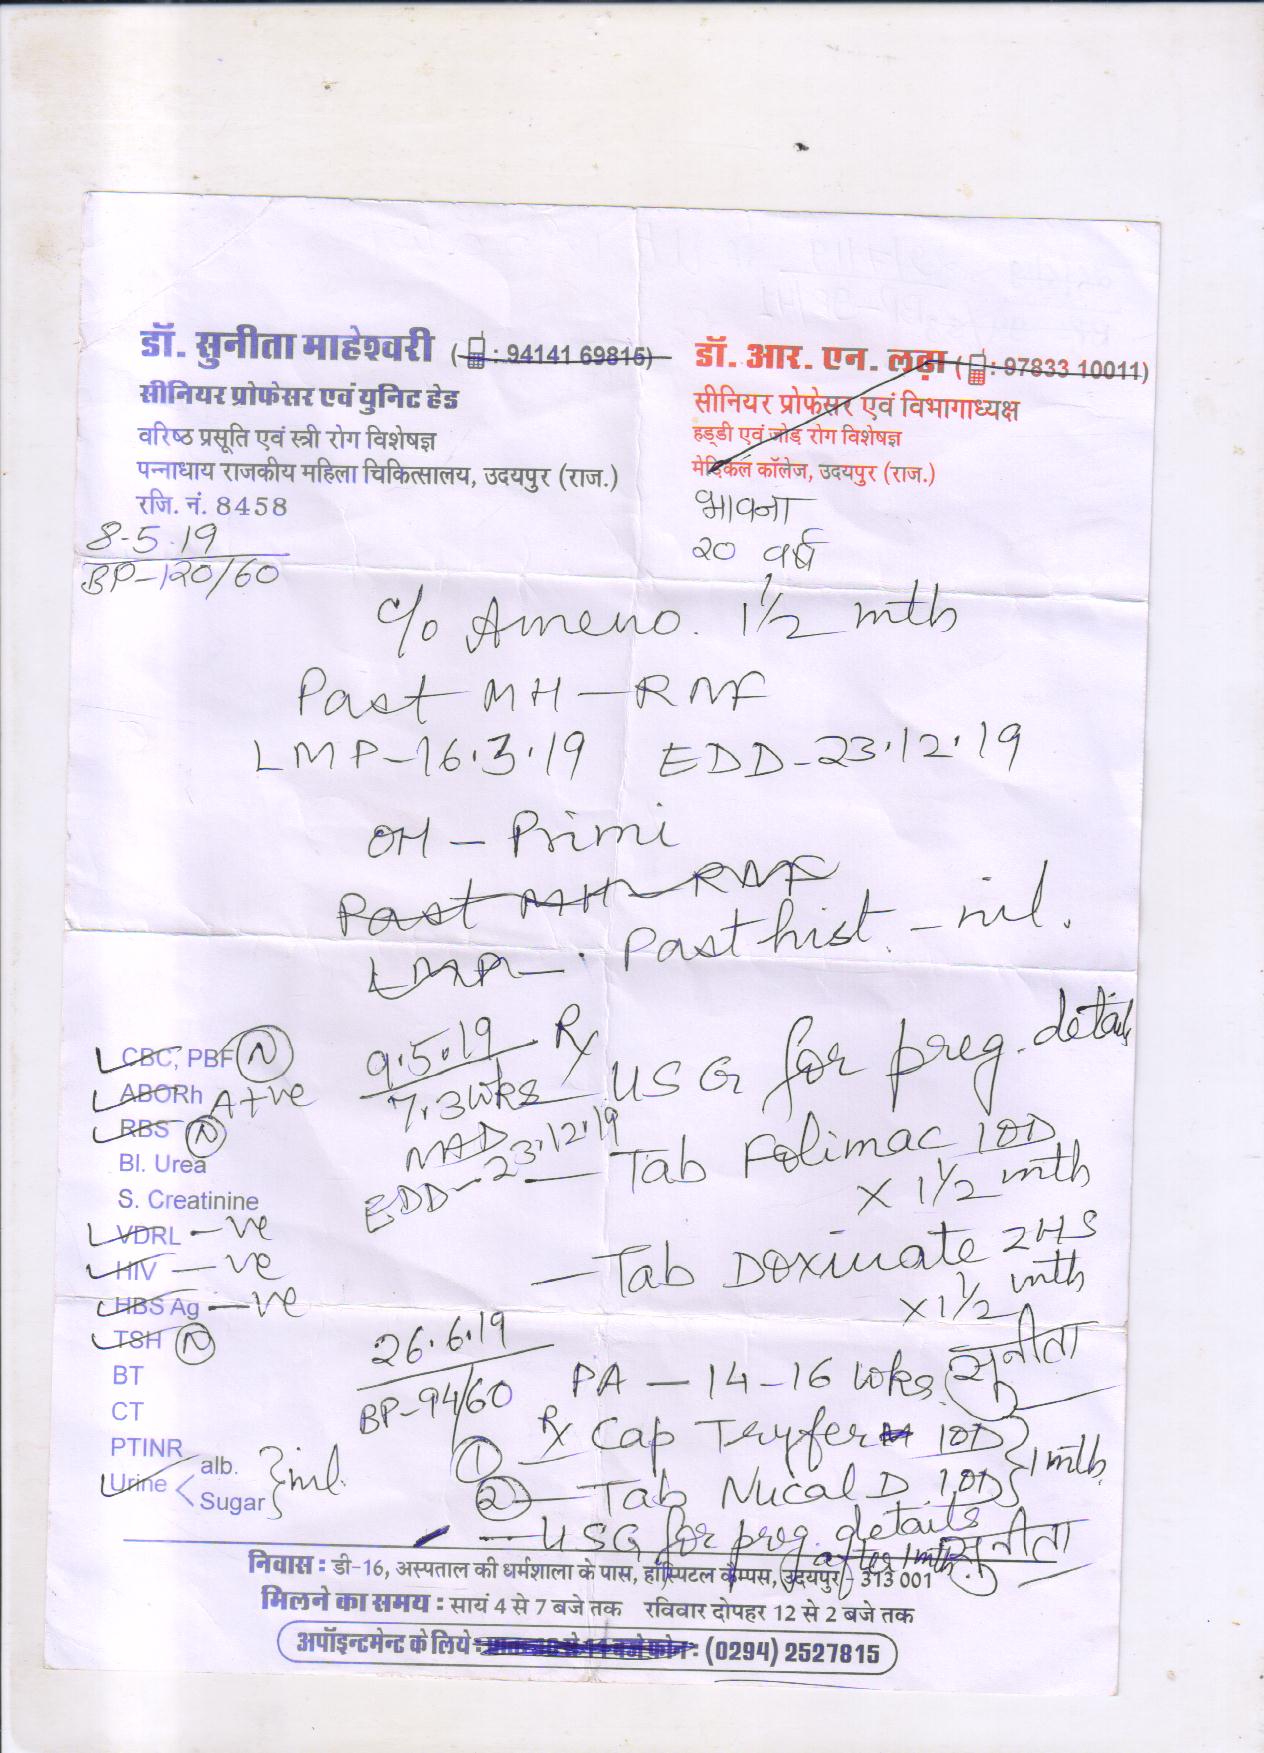 डॉ. सुनीता माहेश्वरी (: 94141 69815)
सीनियर प्रोफेसर एवं युनिट हेड
वरिष्ठ प्रसूति एवं स्त्री रोग विशेषज्ञ
पन्नाधाय राजकीय महिला चिकित्सालय, उदयपुर (राज.)
रजि. नं. 8458
डॉ. आर. एन. लढ़ा (: 97833 10011)
सीनियर प्रोफेसर एवं विभागाध्यक्ष
हड्डी एवं जोड़ रोग विशेषज्ञ
मेडिकल कॉलेज, उदयपुर (राज.)
भावना
२० वर्ष
8.5.19
BP-120/60
c/o Ameno. 1 1/2 mth
Past MH - RNF
LMP-16.3.19 EDD-23.12.19
OH - Primi
Past MH - RNF
LMP - . Past hist. - nil.
CBC, PBF N
ABORh A+ve
RBS N
Bl. Urea
S. Creatinine
VDRL -ve
HIV -ve
HBS Ag -ve
TSH N
BT
CT
PTINR
Urine < alb. Sugar } nil.
9.5.19
7.3 wks
NAD
EDD-23.12.19
Rx
- USG for preg. details
- Tab Folimac 1OD
x 1 1/2 mth
- Tab Doxinate 2HS
x 1 1/2 mth
सुनीता
26.6.19
BP-94/60
PA - 14-16 wks.
Rx
1 Cap Tryfer 1OD
2 - Tab Nucal D 1OD } 1 mth.
- USG for preg. details
after 1 mth.
सुनीता
निवास : डी-16, अस्पताल की धर्मशाला के पास, हॉस्पिटल कैम्पस, उदयपुर - 313 001
मिलने का समय : सायं 4 से 7 बजे तक रविवार दोपहर 12 से 2 बजे तक
अपॉइन्टमेन्ट के लिये : (0294) 2527815